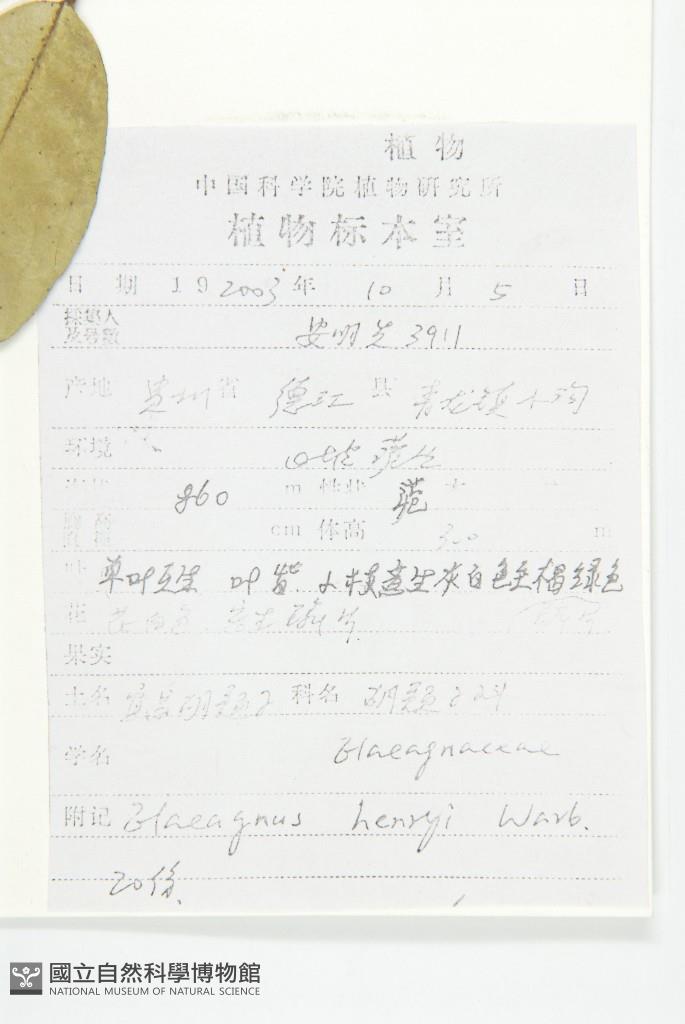 植物
中国科学院植物研究所
植物标本室
日期 19 2003 年 10 月 5 日
採集人
及号数 安明先 3911
产地 贵州省 德江县 青龙镇
环境 山坡
860 m 性状
cm 体高 300 m
叶 单叶互生 叶背 小枝 生灰白色 褐绿色
花 花白色 鳞片
果实
土名 宜昌胡颓子 科名 胡颓子科
学名 Elaeagnaceae
附记 Elaeagnus henryi Warb.
20份.
國立自然科學博物館
NATIONAL MUSEUM OF NATURAL SCIENCE